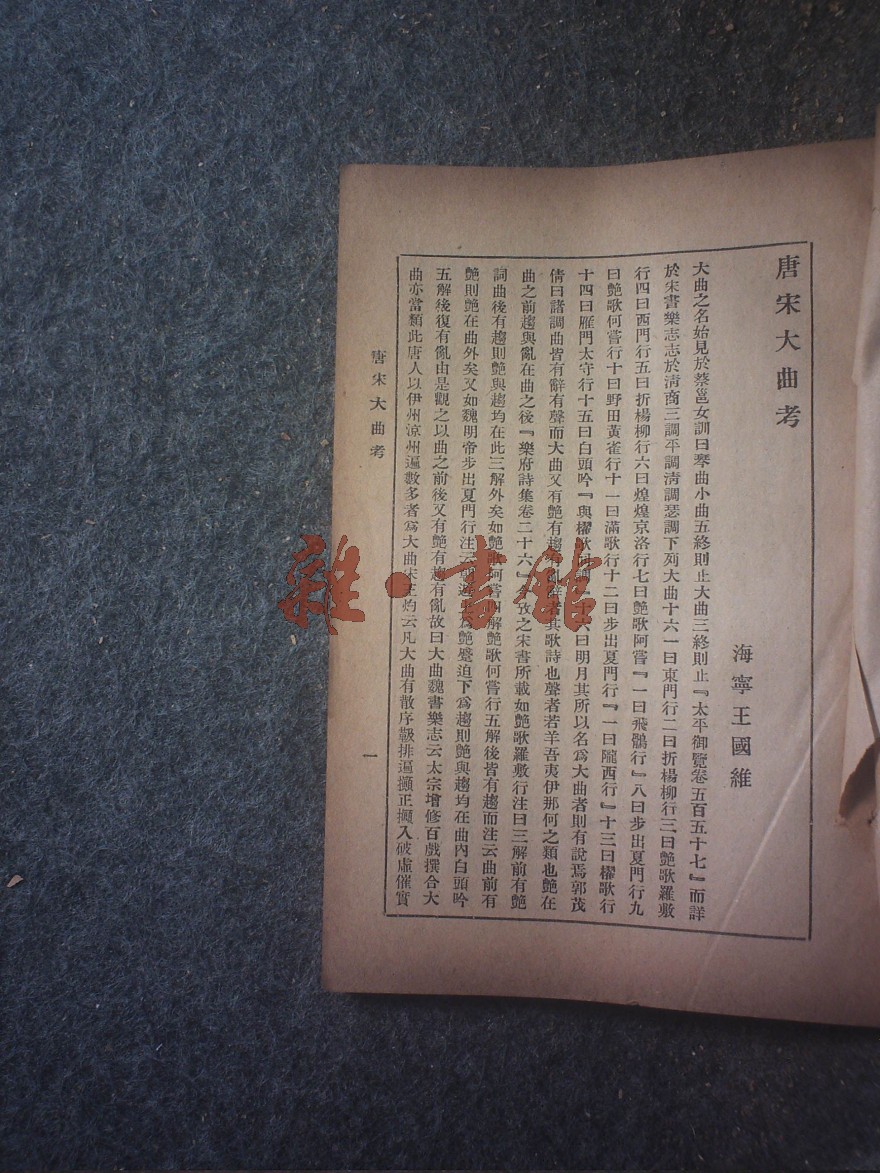 唐宋大曲考
海寧王國維
大曲之名始見於蔡邕女訓曰琴曲小曲五終則止大曲三終則止『太平御覽卷五百五十七』而詳
於宋書樂志志於淸商三調平調淸調瑟調下列大曲十六一曰東門行二曰折楊柳行三曰艷歌羅敷
行四曰西門行五曰折楊柳行六曰煌煌京洛行七曰艷歌何嘗『一曰飛鵠行』八曰步出夏門行九
曰艷歌何嘗行十曰野田黃雀行十一曰滿歌行十二曰步出夏門行『一曰隴西行』十三曰櫂歌行
十四曰雁門太守行十五曰白頭吟『與櫂歌同調』十六曰明月其所以名爲大曲者則有說焉郭茂
倩曰諸調曲皆有辭有聲而大曲又有艷有趨有亂辭者其歌詩也聲者若羊吾夷伊那何之類也艷在
曲之前趨與亂在曲之後『樂府詩集卷二十六』攷之宋書所載如艷歌羅敷行注曰三解前有艷
詞曲後有趨則艷與趨均在此三解外矣如艷歌何嘗四解艷歌何嘗行五解後皆有趨而注云曲前有
艷則艷在曲外矣又如魏明帝步出夏門行注云朝遊上爲艷蹙迫下爲趨則艷與趨均在曲內白頭吟
五解後復有亂由是觀之以曲之前後又有艷有趨有亂故曰大曲魏書樂志云太宗增修百戲撰合大
曲亦當類此唐人以伊州涼州遍數多者爲大曲宋王灼云凡大曲有散序靸排遍攧正攧入破虛催實
唐宋大曲考
一
雜·書館